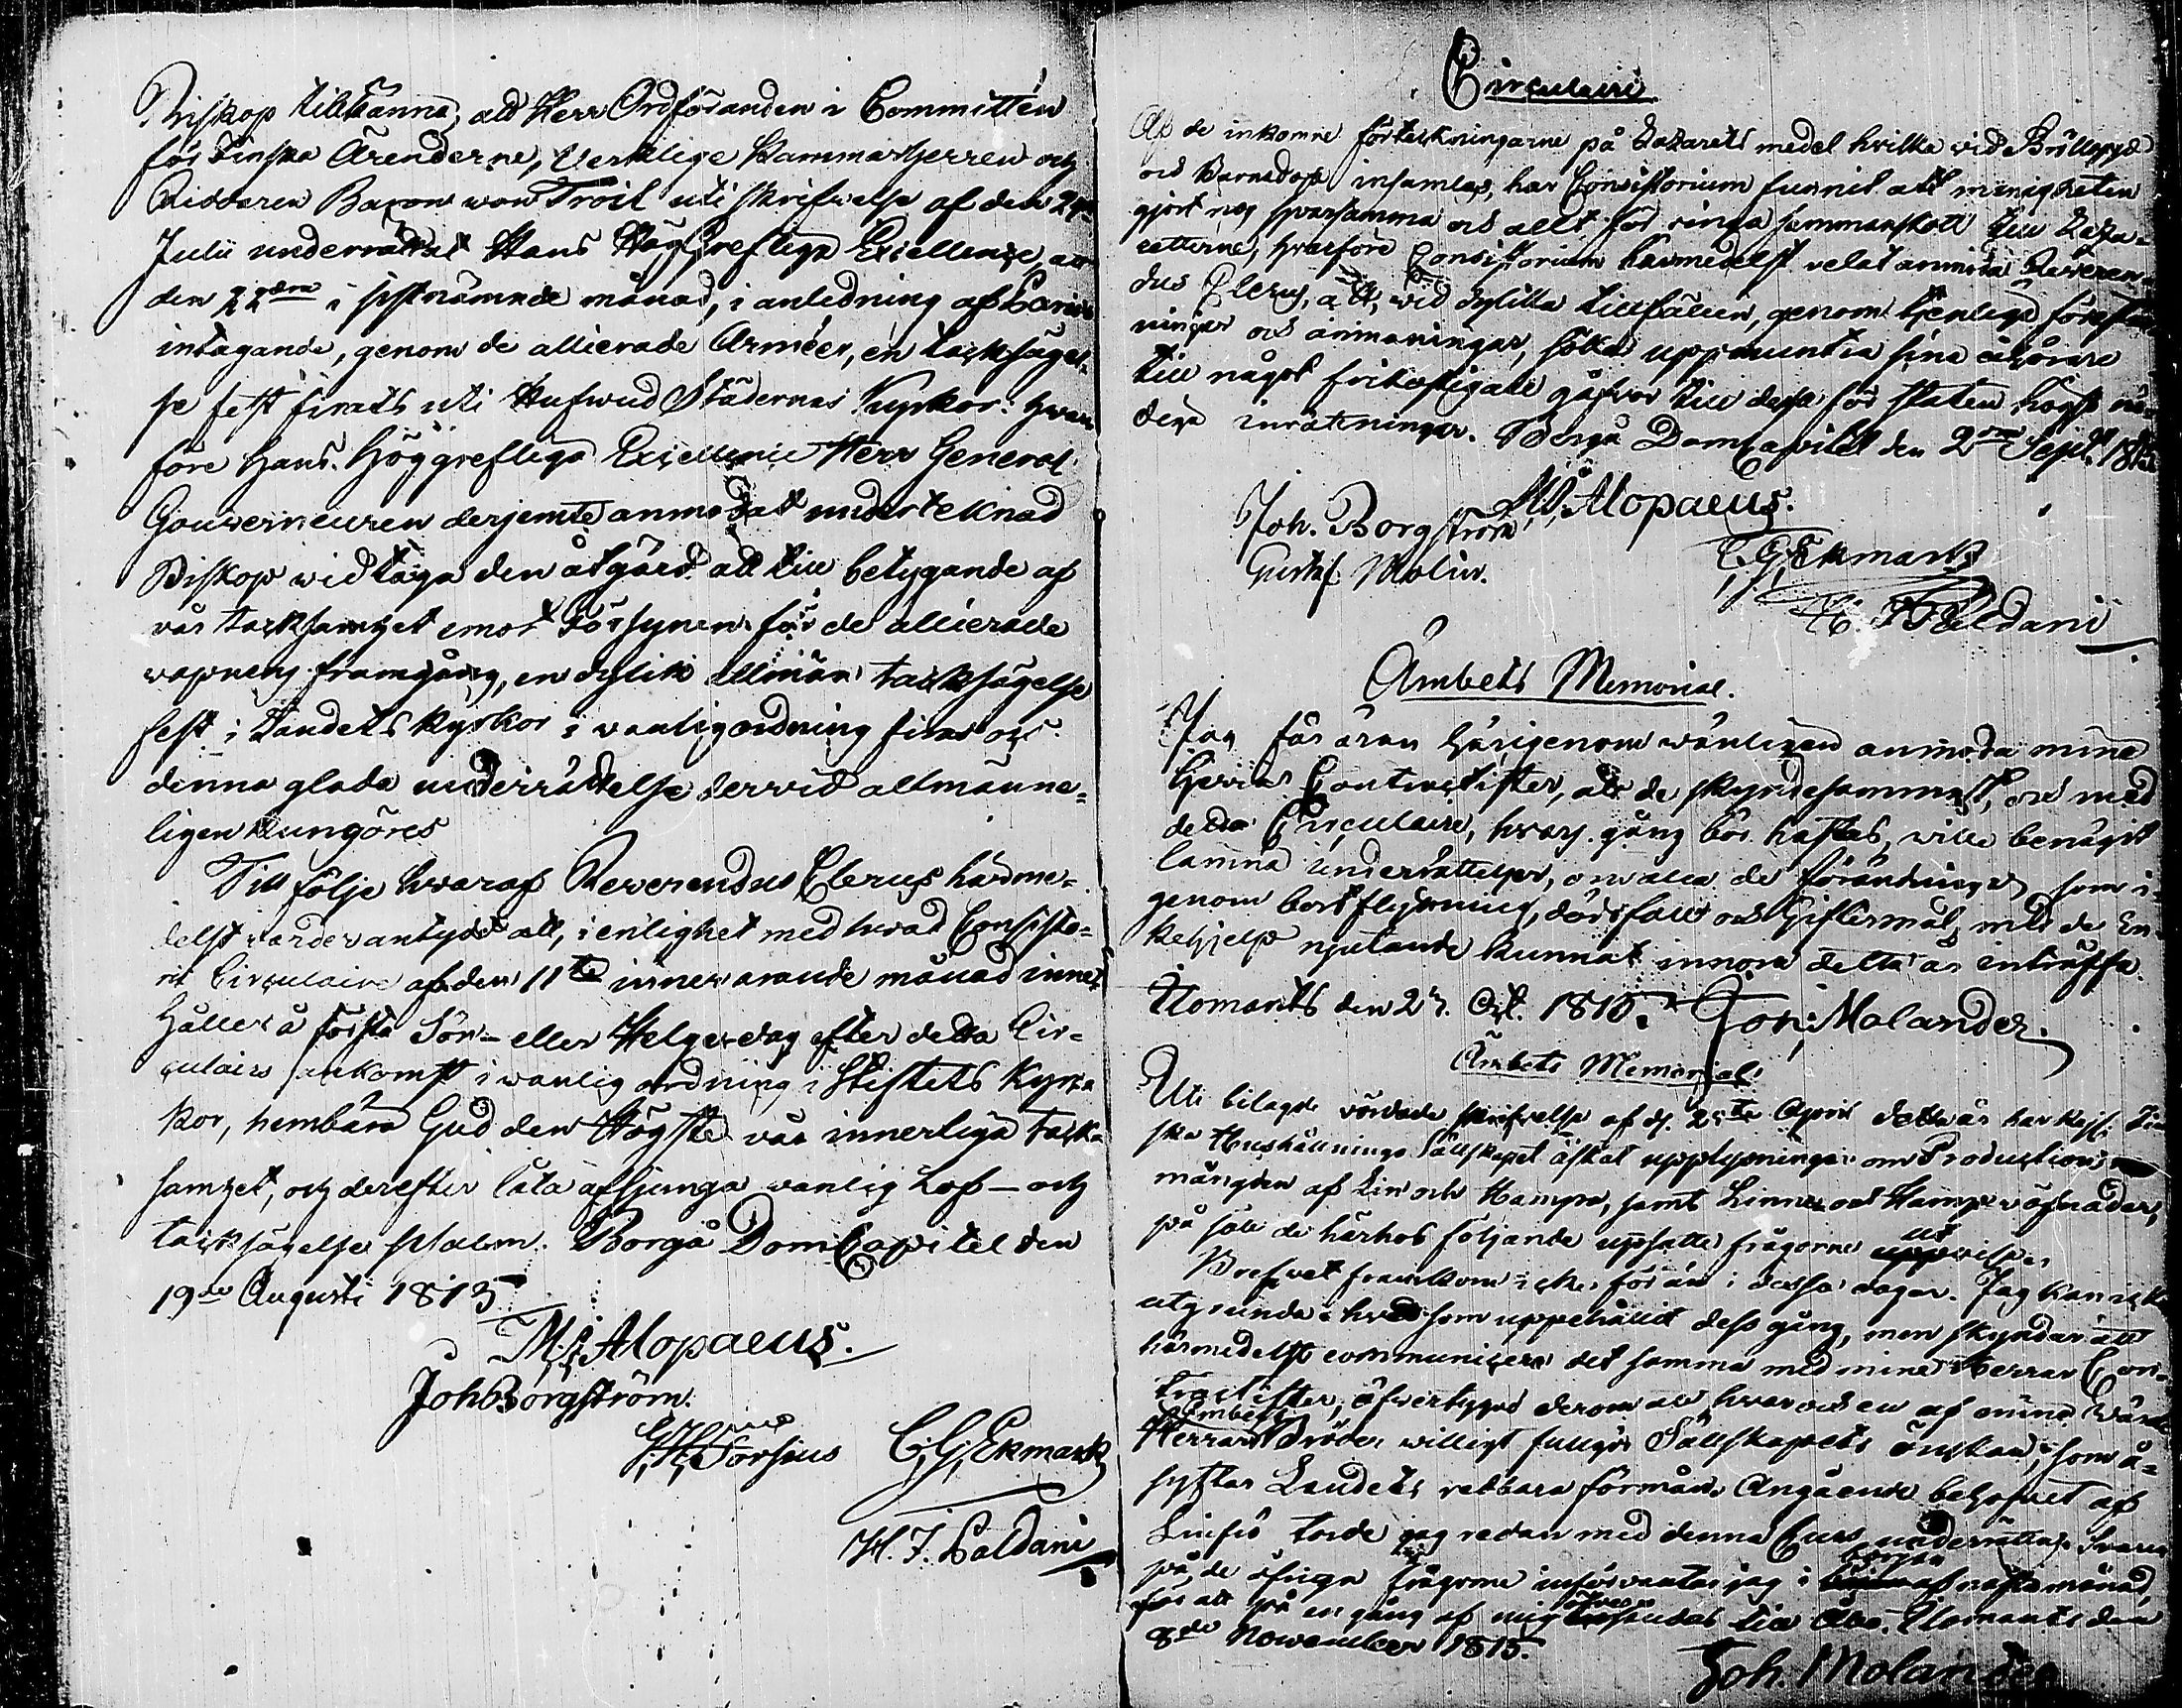 Biskop tillkänna, att Herr Ordföranden i Committén
för Finska Ärenderne, Verklige Kammarherren och
Riddaren Baron von Troil uti skrifvelse af den
Julii underrättat Hans Höggrefliga Excellence, att
den 22dra i sistnämnde månad, i anledning af Paris
intagande, genom de allierade Arméer, en tacksägel-
se fest firats uti Hufwud Städernas Kyrkor: hvar-
före Hans Höggrefliga Excellence Herr General
Gouverneuren derjemte anmodat undertecknad
Biskop widtaga den åtgärd att till betygande af
vår tacksamhet emot Försynen för de allierade
vapnens framgång, en dylik allmän tacksägelse
fest i Landets kyrkor i vanlig ordning firas och
denna glada underrättelse dervid allmänne-
ligen kungöres
Till följe hvaraf Reverendus Clerus härme-
delst varder antydt att, i enlighet med hvad Consisto-
rii Circulaire af den 11te innevarande månad inne-
håller å första Sön- eller Helgedag efter detta Cir-
culairs ankomst i vanlig ordning i Stiftets Kyr-
kor, hembära Gud den Högste vår innerliga tack-
samhet, och derefter låta afsjunga vanlig Lof- och
tacksägelse psalm. Borgå DomCapitel den
19de Augusti 1815
M. Alopaeus.
Joh Borgström.
Forsius C. G. Ekmark
H. J. Faldani
Circulaire
Af de inkomne förteckningarne på Lazarets medel hvilka vid Bröllopp
och Barndop insamlas, har Consistorium funnit att menigheten
gjort nog sparsamma och allt för ringa sammanskott till Laza-
retterne, hvarföre Consistorium härmedelst velat anmoda Reveren-
dus Clerus, att, vid dylika tillfällen, genom tjenliga förestäl-
ningar och anmaningar, söka uppmuntra sina åhörare
till något frikostigare gåfvor till dessa för staten högst nö-
diga inrättningar. Borgå DomCapitel den 2dra Sept. 1815
M. Alopaeus.
Joh. Borgström
Gustaf Molin. C. G. Ekmark
H. J. Faldani
Ämbets Memorial.
Jag får äran härigenom vänligen anmoda mine
Herrar Contractister, att de skyndesammast, och med
detta Circulaire, hvars gång bör hastas, ville benägit
lämna underrättelser, om alla de förändringar, som i-
genom bortflyttning, dödsfall och Giftermål, med de En-
kehjelp njutande kunnat innom detta år inträffa.
Ilomants den 27. Oct. 1815. Joh. Molander.
Ämbets Memorial
Uti bilagde vördade skrifvelse af d. 25te April detta år har Kejs. Fin-
ska Hushållnings Sällskapet äskat upplysningar om Productions
mängden af Lin och Hampa, samt Linne och Hampväfnader,
på sätt de härhos följande uppsatte frågorne utvisa
Brefvet framkom icke förän i dessa dagar. Jag kan icke
utgrunda hvad som uppehållit dess gång, men skyndar att
härmedelst communicera det samma med mine Herrar Con-
tractister, öfvertygad derom att hvar och en af mine Värde
Herrar Embets Bröder villigt fullgör Sällskapets önskan, som å-
syftar Landets redbara förmån. Angående behofvet af
Linfrö torde jag redan med denna Curs underrättas. Svaren
på de öfriga frågorne införväntar jag i början af nästa månad,
för att på en gång af mig öfversändas till Åbo. Ilomants den
8de November 1815.
Joh. Molander